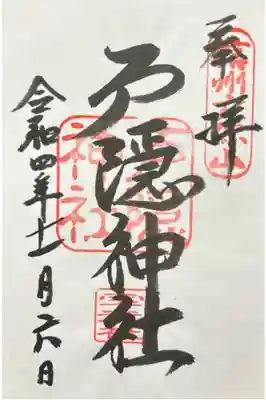 奉拝
戸隠神社
令和四年十一月六日